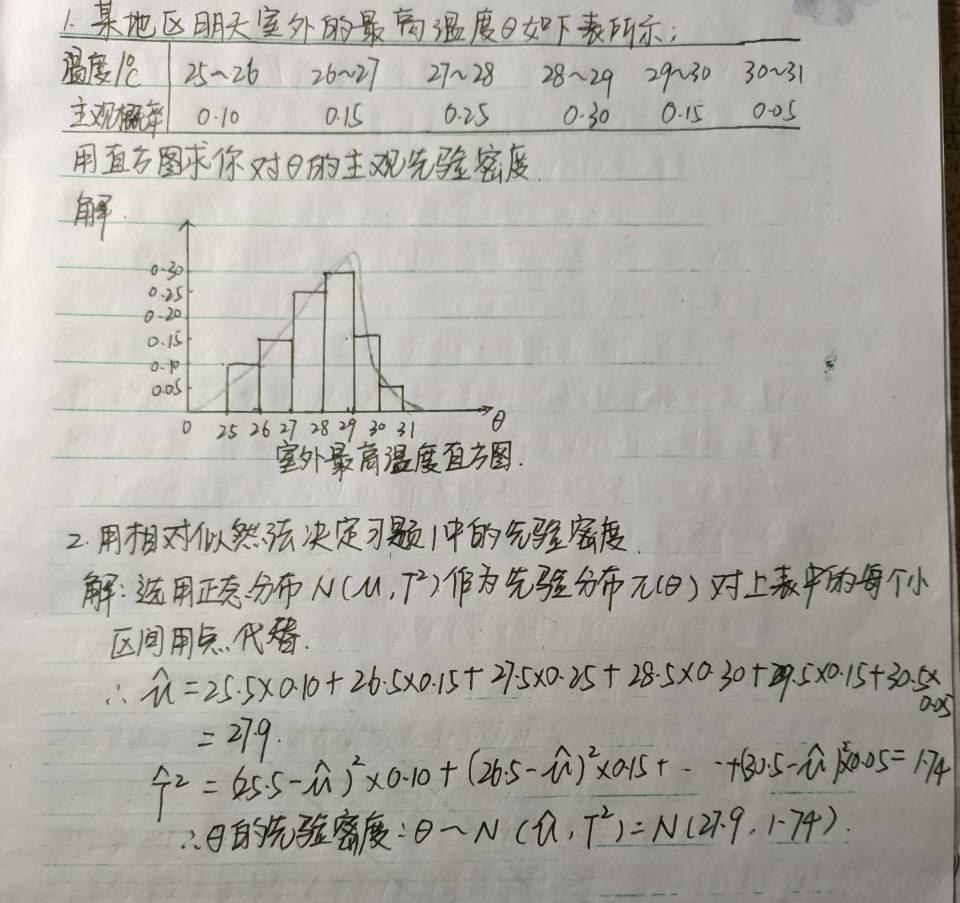 1. 某地区明天室外的最高温度θ如下表所示:
温度/℃ 25~26 26~27 27~28 28~29 29~30 30~31
主观概率 0.10 0.15 0.25 0.30 0.15 0.05
用直方图求你对θ的主观先验密度.
解.
0.30
0.25
0.20
0.15
0.10
0.05
0 25 26 27 28 29 30 31 θ
室外最高温度直方图.
2. 用相对似然法决定习题1中的先验密度.
解: 选用正态分布N(μ, τ²)作为先验分布π(θ) 对上表中的每个小
区间用点代替.
∴ μ̂ = 25.5×0.10 + 26.5×0.15 + 27.5×0.25 + 28.5×0.30 + 29.5×0.15 + 30.5×
0.05
= 27.9.
τ̂² = (25.5-μ̂)²×0.10 + (26.5-μ̂)²×0.15 + - - +(30.5-μ̂)²×0.05 = 1.74
∴ θ的先验密度: θ ~ N (μ̂, τ²) = N(27.9, 1.74).